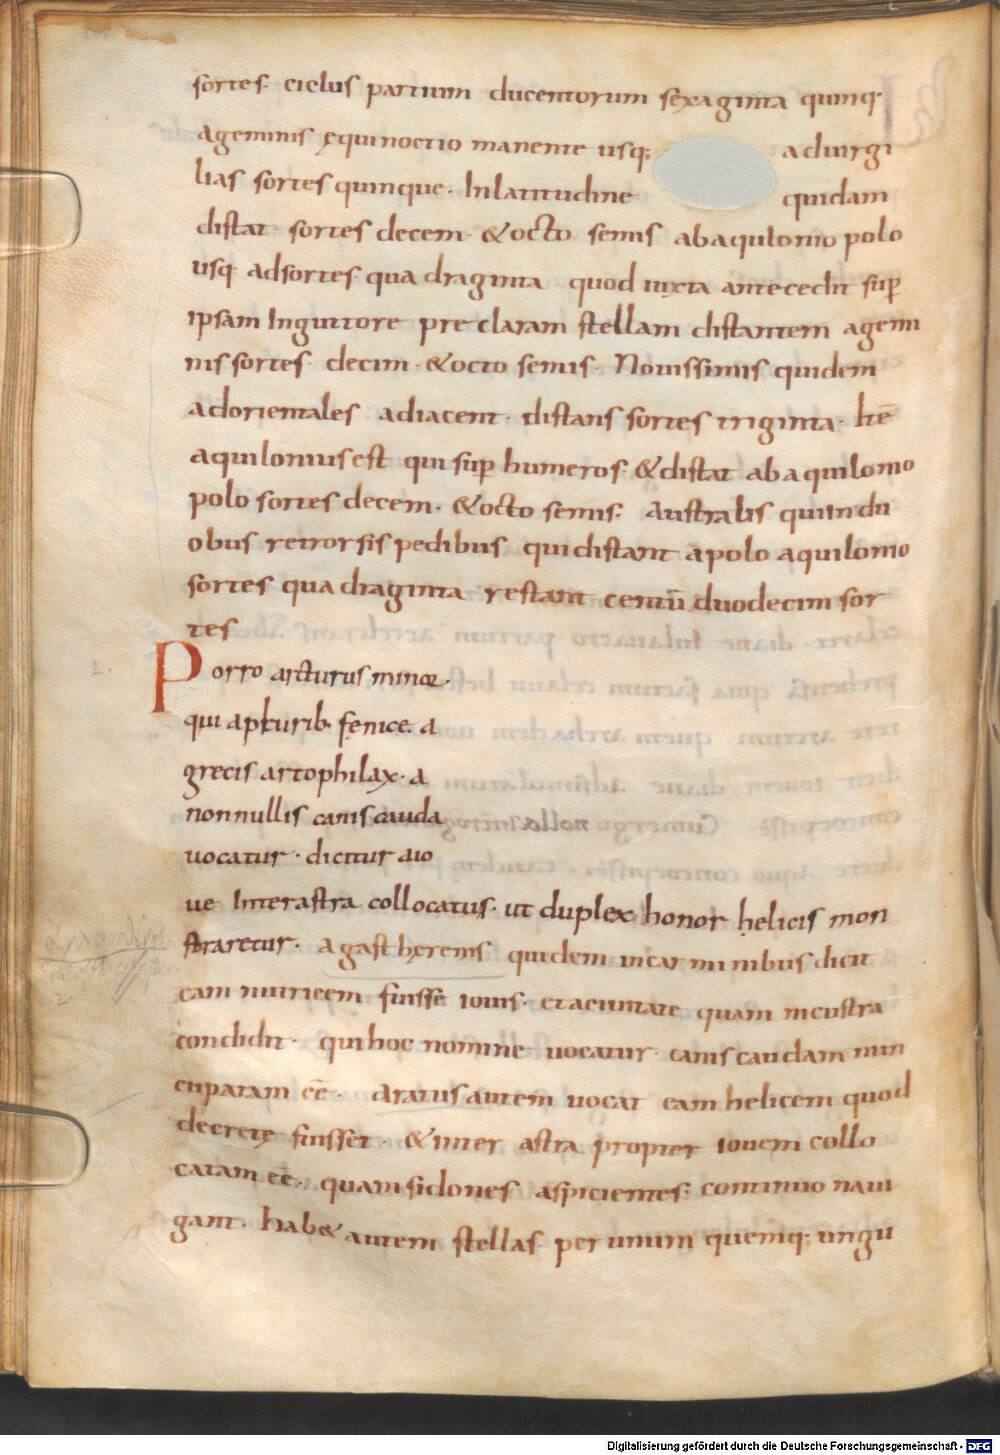 sortes. ciclus partium ducentorum sexaginta quinq·
ageminis ęquinoctio manente usq; aduirgi
lias sortes quinque. Inlatitudine quidam
distat sortes decem &octo semis abaquilonio polo
usq; adsortes quadraginta quod iuxta antecedit sup
ipsam Inguttore preclaram stellam distantem agemi
nis sortes decim &octo semis. Nouissimis quidem
adorientales adiacent. distans sortes triginta. Itē
aquilonius est qui sup humeros &distat abaquilonio
polo sortes decem. &octo semis. australis qui indu
obus retrorsis pedibus quidistant apolo aquilonio
sortes quadraginta restant centū duodecim sor
tes
Porro arcturus minor.
qui apturib. fenice. a
grecis artophilax. a
nonnullis canis cauda
uocatur. dicitur aio
ue Interastra collocatus. ut duplex honor helicis mon
straretur. agasthęrenis quidem incarminibus dicit
eam nutricem fuisse iouis. etaciuitate quam incustra
condidit. quihoc nomine uocatur caniscaudam nun
cupatam eē. aratus autem uocat eam helicem quod
decretę fuisset. &inter astra propter iouem collo
catam eē. quam sidones aspicientes. continuo naui
gant. hab& autem stellas per unum quemq; ungu
Digitalisierung gefördert durch die Deutsche Forschungsgemeinschaft - DFG